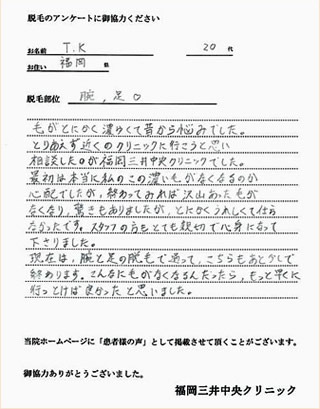 脱毛のアンケートに御協力ください
お名前 T.K 20 代
お住い 福岡 県
脱毛部位 腕,足
毛がとにかく濃ゆくて昔から悩みでした。
とりあえず近くのクリニックに行こうと思い
相談したのが福岡三井中央クリニックでした。
最初は本当に私のこの濃い毛がなくなるのか
心配でしたが、終わってみれば沢山あった毛が
なくなり、驚きもありましたが、とにかくうれしくて仕方
なかったです。スタッフの方もとても親切で心身になって
下さりました。
現在は、腕と足の脱毛で通って、こちらもあと少しで
終わります。こんなに毛がなくなるんだったら、もっと早くに
行っとけば良かったと思いました。
当院ホームページに「患者様の声」として掲載させて頂くことがございます。
御協力ありがとうございました。
福岡三井中央クリニック